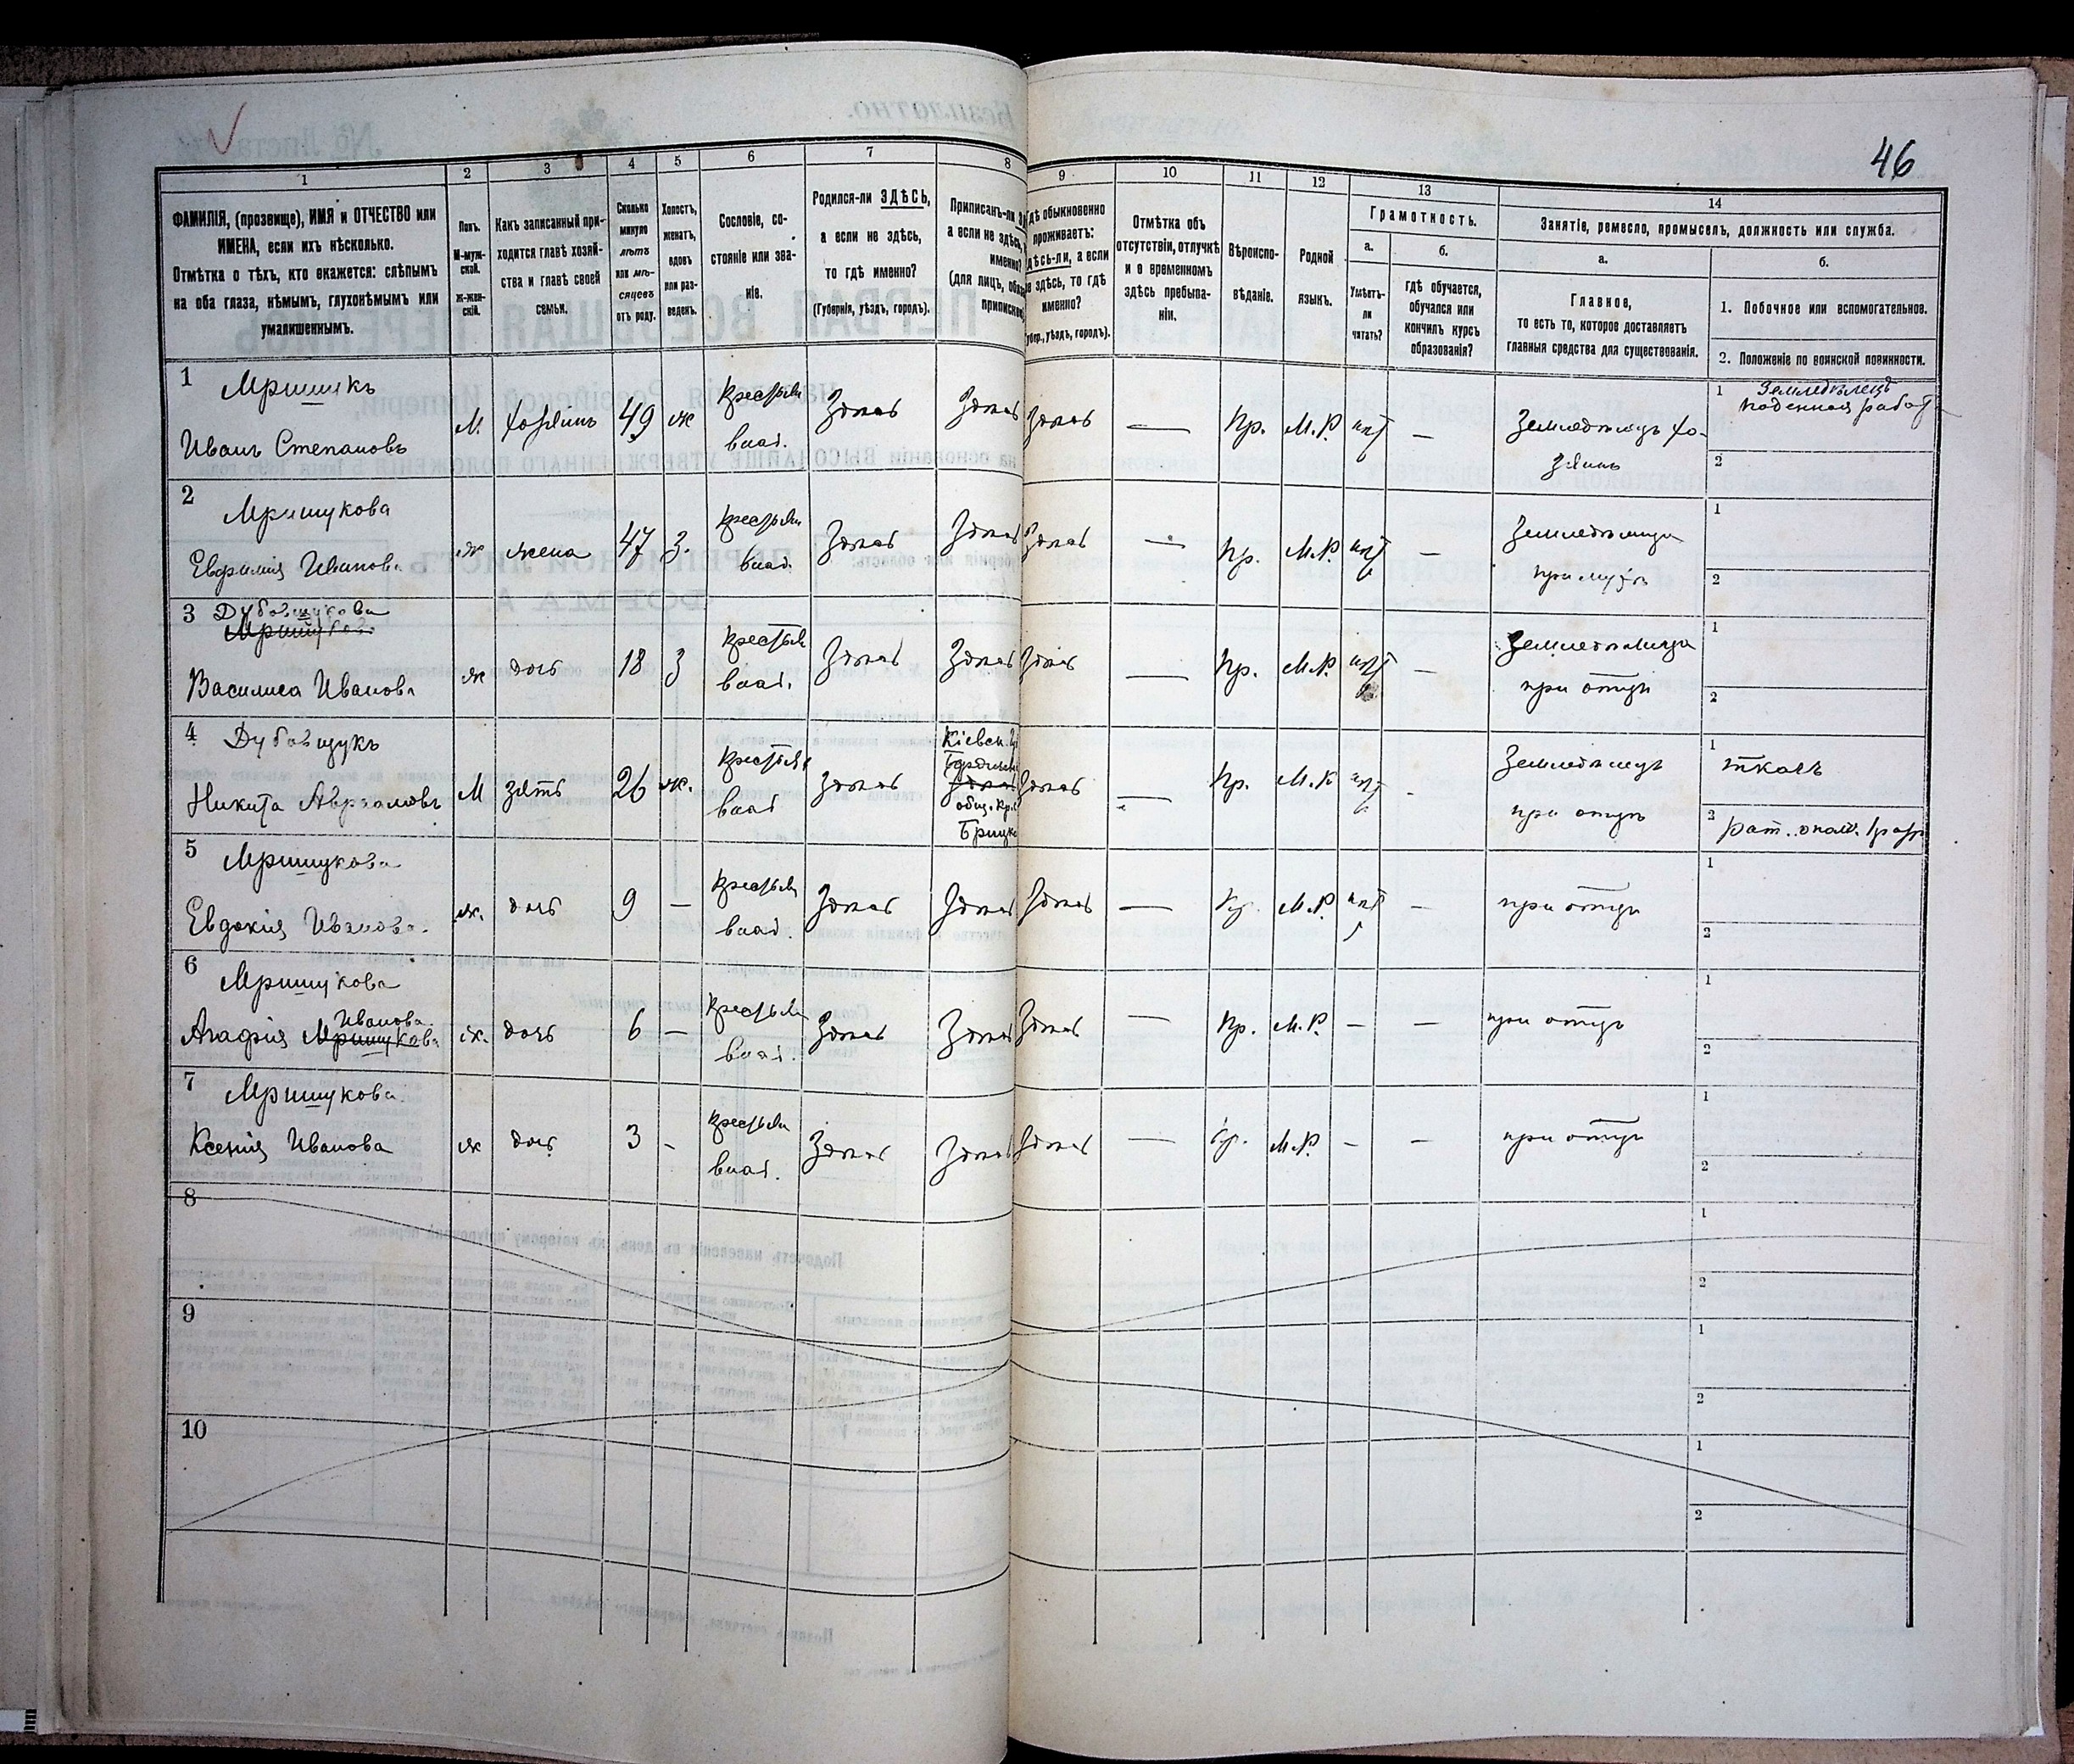 46
1
2
3
4
5
6
7
8
9
10
11
12
13
14
ФАМИЛІЯ, (прозвище), ИМЯ и ОТЧЕСТВО или
ИМЕНА, если ихъ нѣсколько.
Отмѣтка о тѣхъ, кто окажется: слѣпымъ
на оба глаза, нѣмымъ, глухонѣмымъ или
умалишеннымъ.
Полъ.
М-муж-
ской.
Ж-жен-
скій.
Какъ записанный при-
ходится главѣ хозяй-
ства и главѣ своей
семьи.
Сколько
минуло
лѣтъ
или мѣ-
сяцевъ
отъ роду.
Холостъ,
женатъ,
вдовъ
или раз-
веденъ.
Сословіе, со-
стояніе или зва-
ніе.
Родился-ли ЗДѢСЬ,
а если не здѣсь,
то гдѣ именно?
(Губернія, уѣздъ, городъ).
Приписанъ-ли
а если не здѣсь,
именно?
(для лицъ,
проживаетъ:
обыкновенно
а если
не здѣсь, то гдѣ
именно?
уѣздъ, городъ).
Отмѣтка объ
отсутствіи, отлучкѣ
и о временномъ
здѣсь пребыва-
ніи.
Вѣроиспо-
вѣданіе.
Родной
языкъ.
Грамотность.
а.
б.
Умѣетъ-
ли
читать?
гдѣ обучается,
обучался или
кончилъ курсъ
образованія?
Занятіе, ремесло, промыселъ, должность или служба.
а.
б.
Главное,
то есть то, которое доставляетъ
главныя средства для существованія.
1. Побочное или вспомогательное.
2. Положеніе по воинской повинности.
1 Мрищукъ
Иванъ Степановъ
М. хозяинъ 49 ж крестьян влад. Здѣсь Здѣсь Здѣсь — Пр. М.Р. нѣт — Земледѣлецъ хо-
зяинъ
1 Земледѣлецъ
поденная работ
2
2 Мрищукова
Евфимія Иванова
ж жена 47 З. крестьян влад. Здѣсь Здѣсь Здѣсь — Пр. М.Р. нѣт — Земледѣлица
при мужѣ
1
2
3 Дубовщукова
Василиса Иванова
ж дочь 18 З крестьян влад. Здѣсь Здѣсь Здѣсь — Пр. М.Р. нѣт — Земледѣлица
при отцѣ
1
2
4 Дубовщукъ
Никита Авраамовъ
М зять 26 ж. крестьян влад Здѣсь
Кіевск.
Бердичев
Здѣсь
общ. кр.
Здѣсь — Пр. М.Р нѣт Земледѣлецъ
при отцѣ
1 ткачъ
2 рат. опол.
5 Мрищукова
Евдокія Иванова.
ж. дочь 9 — крестьян влад. Здѣсь Здѣсь Здѣсь — Пр. М.Р. нѣт — при отцѣ
1
2
6 Мрищукова
Иванова
Агафія Мрищукова
ж. дочь 6 — крестьян влад. Здѣсь Здѣсь Здѣсь — Пр. М.Р. — — при отцѣ
1
2
7 Мрищукова
Ксенія Иванова
ж дочь 3 - крестьян влад. Здѣсь Здѣсь Здѣсь — Пр. М.Р. - — при отцѣ
1
2
8
1
2
9
1
2
10
1
2